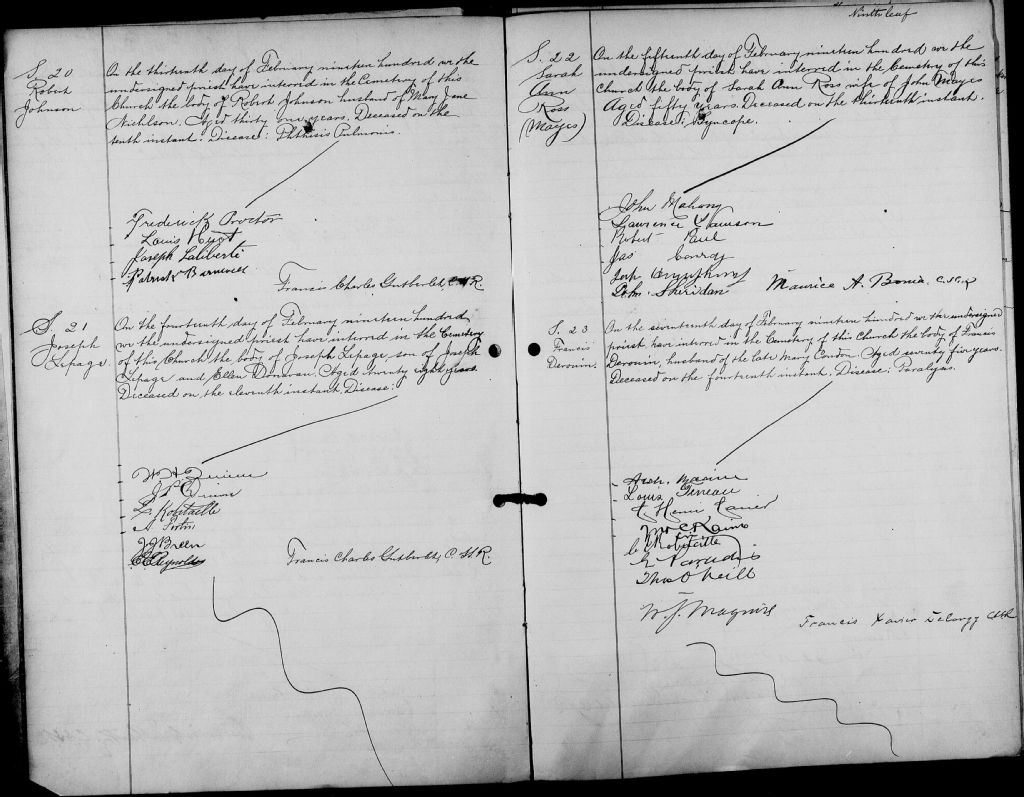 S. 20
Robert
Johnson
On the thirteenth day of February nineteen hundred we the
undersigned priest have interred in the Cemetery of this
Church the body of Robert Johnson husband of Mary Jane
Nichlson. Aged thirty one years. Deceased on the
tenth instant. Disease: Phthisis Pulmonis.
Frederick Proctor
Louis Huot
Joseph Laliberté
Patrick
Francis Charles Cutberlet, C.SS.R.
S. 21
Joseph
Lepage.
On the fourteenth day of February nineteen hundred
we the undersigned priest have interred in the Cemetery
of this Church the body of Joseph Lepage, son of Joseph
Lepage and Ellen Donovan. Aged twenty eight years.
Deceased on the eleventh instant. Disease:
J.J. Breen
Reynolds
Francis Charles Gutberlet, C.SS.R
Ninth leaf
S. 22
Sarah
Ann
Ross
(Mayes)
On the fifteenth day of February nineteen hundred we the
undersigned priest have interred in the Cemetery of this
Church the body of Sarah Ann Ross wife of John Mayes
Aged fifty years. Deceased on the thirteenth instant.
Disease: Syncope.
John Mahony
Lawrence
Robert Paul
Jas
John Sheridan
Maurice A. C.SS.R
S. 23
Francis
Derouin.
On the seventeenth day of February nineteen hundred we the undersigned
priest have interred in the Cemetery of this Church the body of Francis
Derouin, husband of the late Mary Condon. Aged seventy five years.
Deceased on the fourteenth instant. Disease: Paralysis.
Louis
Henri
Robitaille
Thos O'Neill
W.J. Maguire
Francis Xavier CSSR